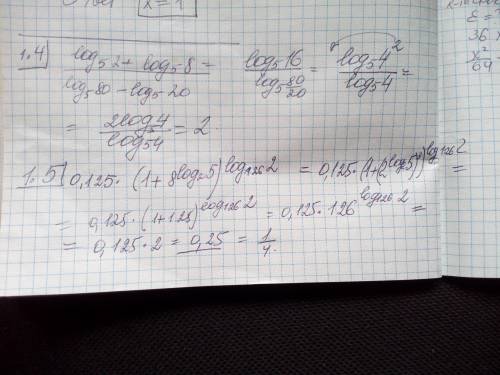 Ответ x=1
1.4) (log₅2 + log₅8)/(log₅80 − log₅20) = log₅16/log₅(80/20) = log₅4²/log₅4 =
= 2log₅4/log₅4 = 2
1.5) 0,125·(1+8^(log₂5))^(log₁₂₆2) = 0,125·(1+(2^(log₂5))³)^(log₁₂₆2) =
= 0,125·(1+125)^(log₁₂₆2) = 0,125·126^(log₁₂₆2) =
= 0,125·2 = 0,25 = 1/4.